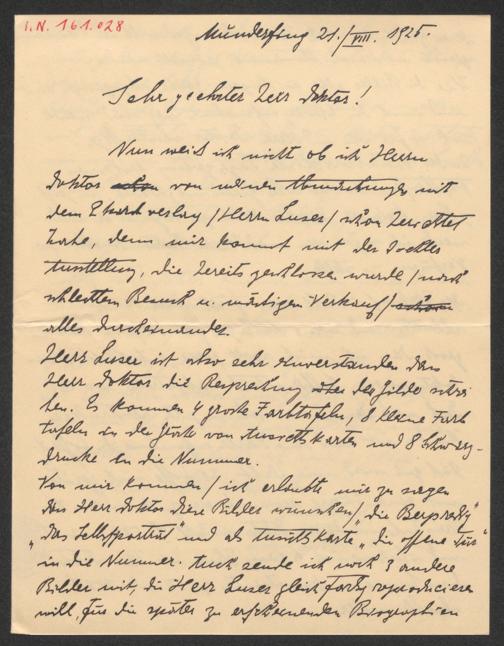 I.N. 161.028
Munderfing 21./VIII. 1925.
Sehr geehrter Herr Doktor!
Nun weiß ich nicht ob ich Herrn
Doktor schon von meinen Abmachungen mit
dem verlag /Herrn Luser/ schon berichtet
habe, denn mir kommt mit der
Ausstellung, die bereits geschlossen wurde /nach
schlechtem Besuch u. mäßigem Verkauf/ schon
alles durcheinander.
Herr Luser ist also sehr einverstanden dass
Herr Doktor die Besprechung über der Gilde schrei
ben. Es kommen 4 große Farbtafeln, 8 kleine Farb
tafeln in der Größe von Ansichtskarten und 8 Schwarz-
drucke in die Nummer.
Von mir kommen /ich erlaubte mir zu sagen
dass Herr Doktor diese Bilder wünschen/ „die Bergpredigt"
„das Selbstporträt" und als Ansichtskarte „die offene Tür"
in die Nummer. Auch sende ich noch 3 andere
Bilder mit, die Herr Luser gleich reproducieren
will, für die später zu erscheinenden Biographien